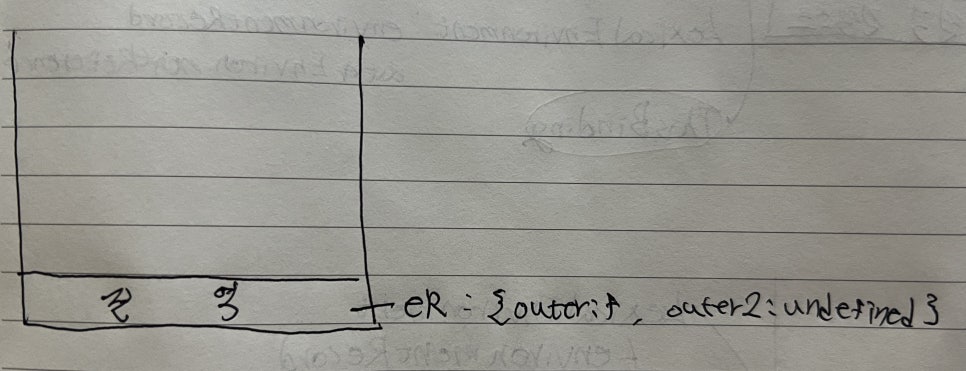 전 역 eR : {outer:f, outer2:undefined}